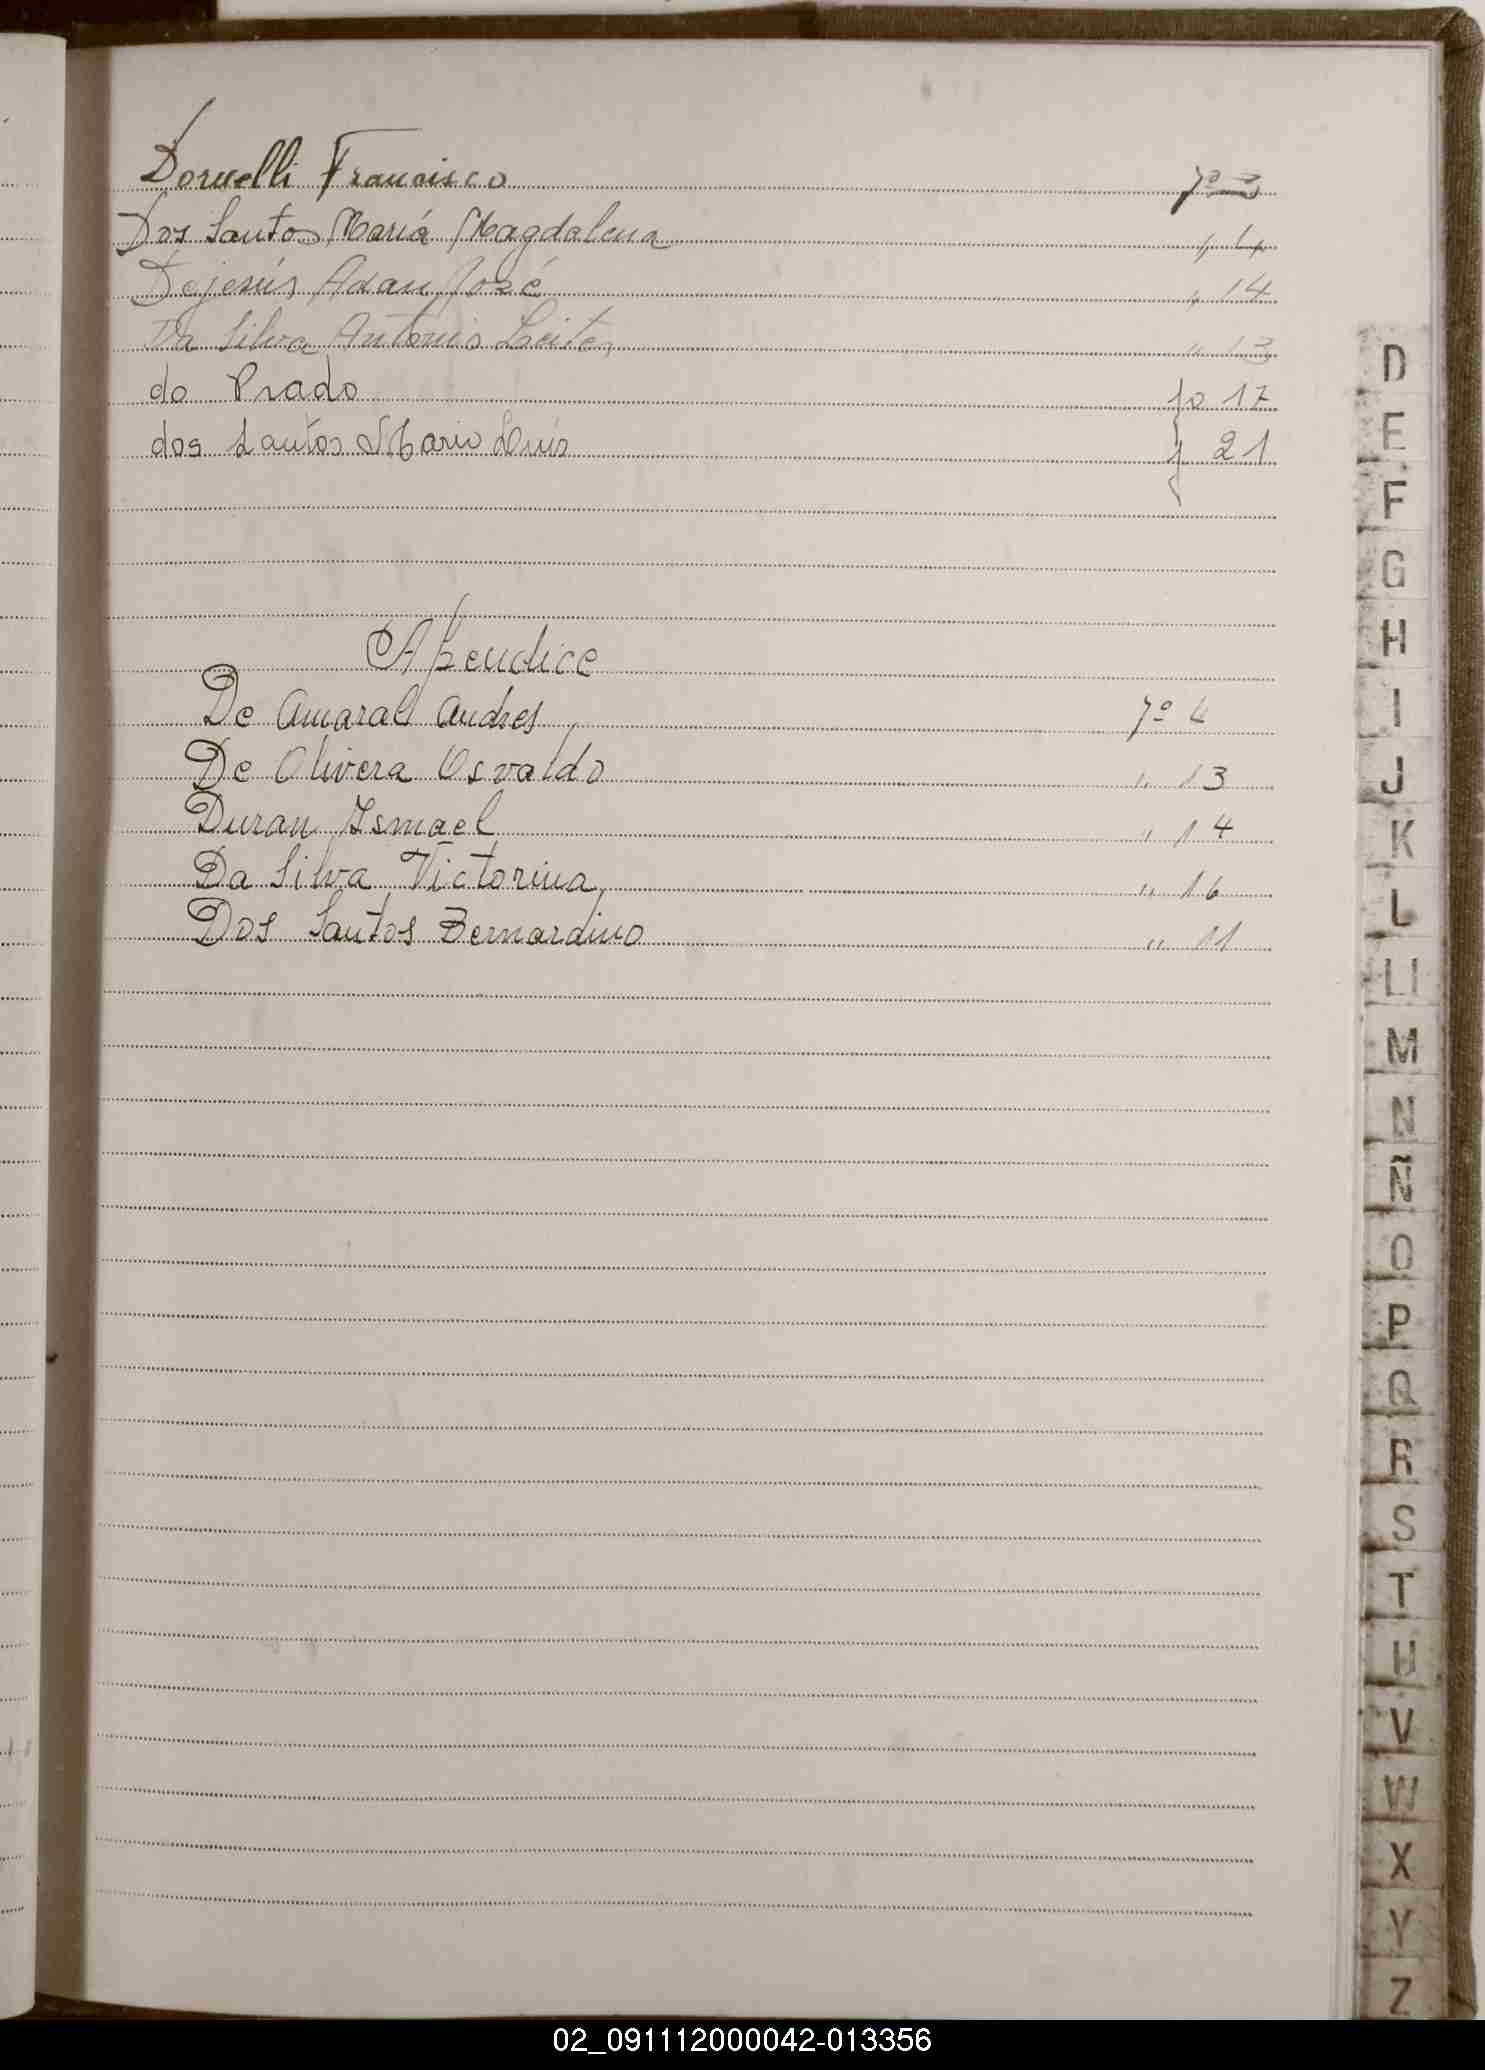 Dornelli Francisco fo 3
Dos Santos María Magdalena " 4
Dejesús Adan José " 14
Da Silva Antonio Leites " 13
do Prado fo 17
dos Santos Mario Luis f 21
Apendice
De Amaral Andres fo 4
De Olivera Osvaldo " 13
Duran Ismael " 14
Da Silva Victorina " 16
Dos Santos Bernardino " 11
D
E
F
G
H
I
J
K
L
Ll
M
N
Ñ
O
P
Q
R
S
T
U
V
W
X
Y
Z
02_091112000042-013356